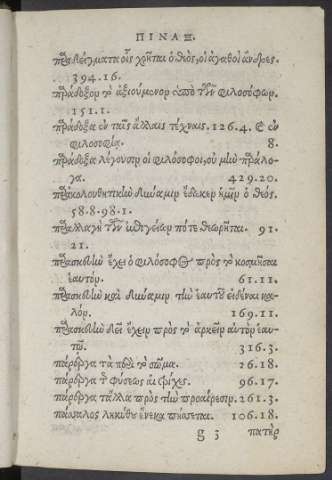 ΠΙΝΑΞ.
παραδείγματα οἷς χρῆται ὁ θεὸς, οἱ ἀγαθοὶ ἄνδρες.
394.16.
παράδοξον τὸ ἀξιούμενον ὑπὸ τῶν φιλοσόφων.
151.1.
παράδοξα ἐν ταῖς ἄλλαις τέχναις. 126.4. & ἐν
φιλοσοφίᾳ. 8.
παράδοξα λέγουσιν οἱ φιλόσοφοι, οὐ μὴν παράλο-
γα. 429.20.
παρακολουθητικὴν δύναμιν ἔδωκεν ἡμῖν ὁ θεός.
58.8.98.1.
παραλλαγὴ τῶν πότε θεωρῆται. 91.
21.
παρασκευὴν ἔχει ὁ φιλόσοφος πρὸς τὸ κοσμῆσαι
ἑαυτόν. 61.11.
παρασκευὴν καὶ δύναμιν τὴν ἑαυτοῦ εἰδέναι κα-
λόν. 169.11.
παρασκευὴν δεῖ ἔχειν πρὸς τὸ ἀρκεῖν αὐτὸν ἑαυ-
τῷ. 316.3.
πάρεργα τὰ περὶ τὸ σῶμα. 26.18.
πάρεργα τ φύσεως αἱ τρίχες. 96.17.
πάρεργα τἄλλα πρὸς τὴν προαίρεσιν. 261.3.
ληκύθου ἕνεκα 106.18.
g 3 πατὴρ